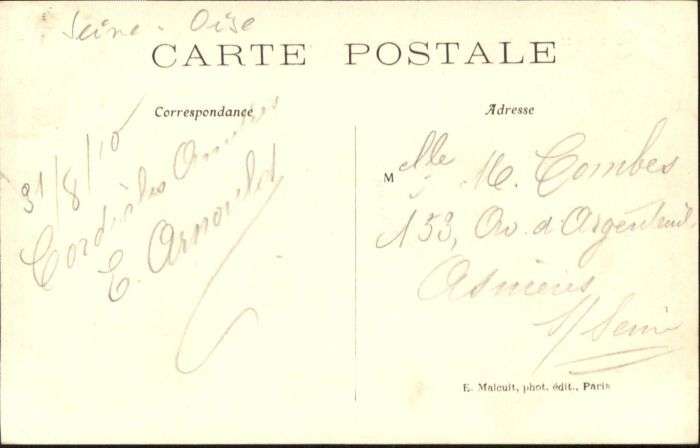 Seine-Oise
CARTE POSTALE
Correspondance
31/8/10
Cordiales Amitiés
E. Arnoulet
Adresse
Melle M. Combes
153, Av. d'Argenteuil
Asnières
s/ Seine
E. Malcuit, phot. édit., Paris